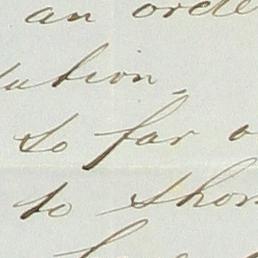 an orde
ution,
so far o
to shor